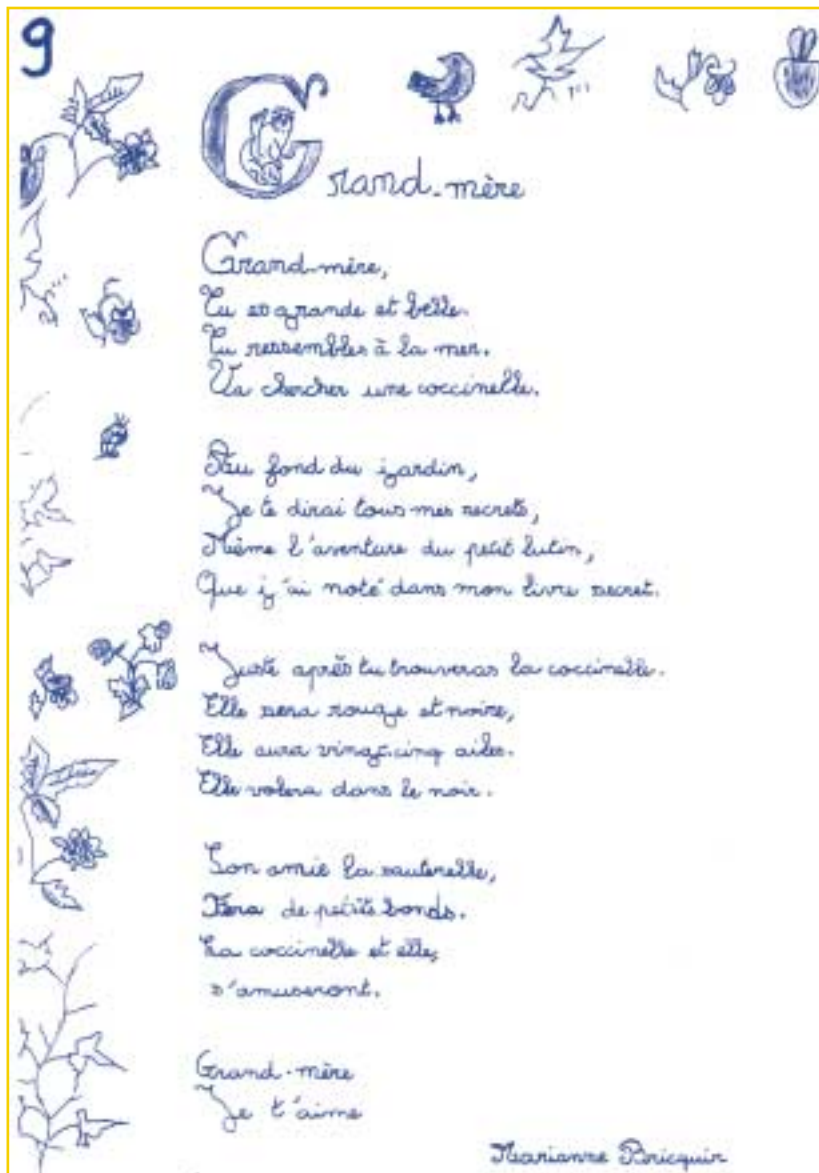 9
Grand-mère
Grand-mère,
Tu es grande et belle.
Tu ressembles à la mer.
Va chercher une coccinelle.
Au fond du jardin,
Je te dirai tous mes secrets,
Même l'aventure du petit lutin,
Que j'ai noté dans mon livre secret.
Juste après tu trouveras la coccinelle.
Elle sera rouge et noire,
Elle aura vingt-cinq ailes.
Elle volera dans le noir.
Son amie la sauterelle,
Fera de petits bonds.
La coccinelle et elle,
s'amuseront.
Grand-mère
Je t'aime
Marianne Bricquir